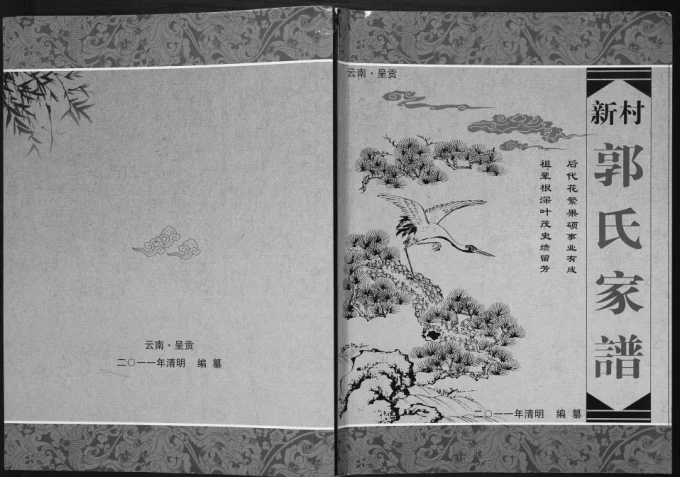 云南·呈贡
新村
郭氏家譜
后代花繁果硕事业有成
祖辈根深叶茂史绩留芳
二〇一一年清明 编 纂
云南·呈贡
二〇一一年清明 编 纂